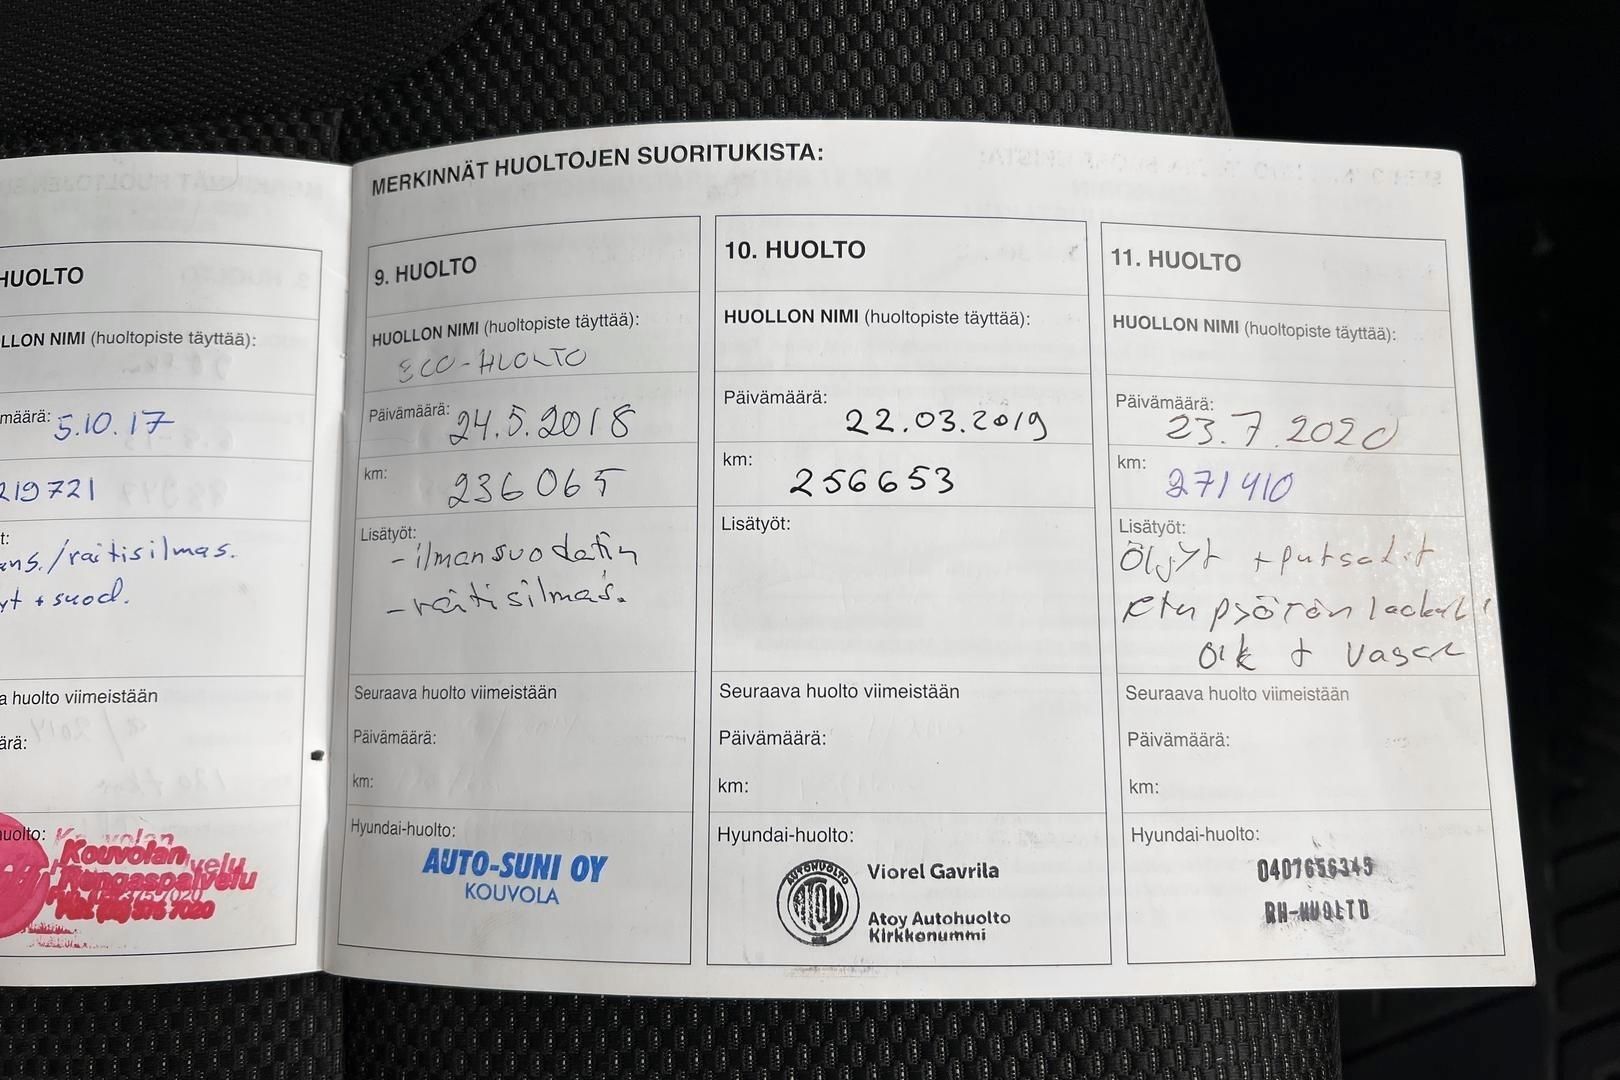 MERKINNÄT HUOLTOJEN SUORITUKISTA:
HUOLTO
LLON NIMI (huoltopiste täyttää):
määrä: 5.10.17
219721
t:
ns./raitisilmas.
yt + suod.
a huolto viimeistään
ärä:
huolto:
Kouvolan
Rengaspalvelu
9. HUOLTO
HUOLLON NIMI (huoltopiste täyttää):
ECO-HUOLTO
Päivämäärä: 24.5.2018
km: 236065
Lisätyöt:
- ilmansuodatin
- raitisilmas.
Seuraava huolto viimeistään
Päivämäärä:
km:
Hyundai-huolto:
AUTO-SUNI OY
KOUVOLA
10. HUOLTO
HUOLLON NIMI (huoltopiste täyttää):
Päivämäärä: 22.03.2019
km: 256653
Lisätyöt:
Seuraava huolto viimeistään
Päivämäärä:
km:
Hyundai-huolto:
AUTOHUOLTO
ATOY
Viorel Gavrila
Atoy Autohuolto
Kirkkonummi
11. HUOLTO
HUOLLON NIMI (huoltopiste täyttää):
Päivämäärä: 23.7.2020
km: 271410
Lisätyöt:
Öljyt + putsarit
etu pyörän laakerit
oik + vasen
Seuraava huolto viimeistään
Päivämäärä:
km:
Hyundai-huolto:
0407656345
RH-HUOLTO